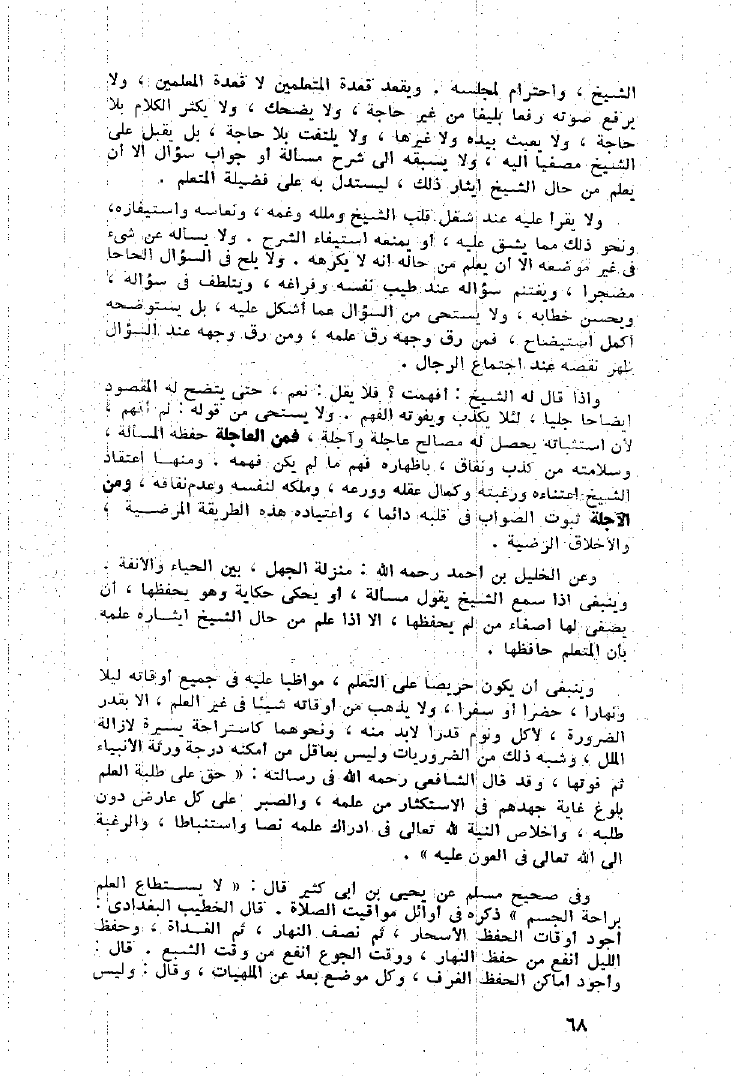 الشيخ ، واحترام لمجلسه . ويقعد قعدة المتعلمين لا قعدة المعلمين ، ولا
يرفع صوته رفعا بليغا من غير حاجة ، ولا يضحك ، ولا يكثر الكلام بلا
حاجة ، ولا يعبث بيده ولا غيرها ، ولا يلتفت بلا حاجة ، بل يقبل على
الشيخ مصغيا اليه ، ولا يسبقه الى شرح مسألة أو جواب سؤال الا أن
يعلم من حال الشيخ ايثار ذلك ، ليستدل به على فضيلة المتعلم .
ولا يقرأ عليه عند شغل قلب الشيخ وملله وغمه ، ونعاسه واستيفازه،
ونحو ذلك مما يشق عليه ، أو يمنعه استيفاء الشرح . ولا يسأله عن شىء
فى غير موضعه الا أن يعلم من حاله انه لا يكرهه . ولا يلح فى السؤال الحاحا
مضجرا ، ويغتنم سؤاله عند طيب نفسه وفراغه ، ويتلطف فى سؤاله ،
ويحسن خطابه ، ولا يستحى من السؤال عما أشكل عليه ، بل يستوضحه
أكمل استيضاح ، فمن رق وجهه رق علمه ، ومن رق وجهه عند السؤال
ظهر نقصه عند اجتماع الرجال .
واذا قال له الشيخ : أفهمت ؟ فلا يقل : نعم ، حتى يتضح له المقصود
ايضاحا جليا ، لئلا يكذب ويفوته الفهم . ولا يستحى من قوله : لم أفهم ،
لأن استثباته يحصل له مصالح عاجلة وآجلة ، فمن العاجلة حفظه المسألة ،
وسلامته من كذب ونفاق ، باظهاره فهم ما لم يكن فهمه . ومنهـا اعتقاد
الشيخ اعتناءه ورغبته وكمال عقله وورعه ، وملكه لنفسه وعدم نفاقه ، ومن
الآجلة ثبوت الصواب فى قلبه دائما ، واعتياده هذه الطريقة المرضـية ،
والأخلاق الرضية .
وعن الخليل بن أحمد رحمه الله : منزلة الجهل ، بين الحياء والأنفة .
وينبغى اذا سمع الشيخ يقول مسألة ، أو يحكى حكاية وهو يحفظها ، أن
يصغى لها اصغاء من لم يحفظها ، الا اذا علم من حال الشيخ ايثـاره علمه
بأن المتعلم حافظها .
وينبغى أن يكون حريصا على التعلم ، مواظبا عليه فى جميع أوقاته ليلا
ونهارا ، حضرا أو سفرا ، ولا يذهب من أوقاته شيئا فى غير العلم ، الا بقدر
الضرورة ، لأكل ونوم قدرا لابد منه ، ونحوهما كاستراحة يسيرة لازالة
الملل ، وشبه ذلك من الضروريات وليس بعاقل من أمكنه درجة ورثة الأنبياء
ثم فوتها ، وقد قال الشافعى رحمه الله فى رسالته : « حق على طلبة العلم
بلوغ غاية جهدهم فى الاستكثار من علمه ، والصبر على كل عارض دون
طلبه ، واخلاص النية لله تعالى فى ادراك علمه نصا واستنباطا ، والرغبة
الى الله تعالى فى العون عليه » .
وفى صحيح مسلم عن يحيى بن أبى كثير قال : « لا يسـتطاع العلم
براحة الجسم » ذكره فى أوائل مواقيت الصلاة . قال الخطيب البغدادى :
أجود أوقات الحفظ الأسحار ، ثم نصف النهار ، ثم الغـداة ، وحفظ
الليل أنفع من حفظ النهار ، ووقت الجوع أنفع من وقت الشبع . قال :
وأجود أماكن الحفظ الغرف ، وكل موضع بعد عن الملهيات ، وقال : وليس
٦٨